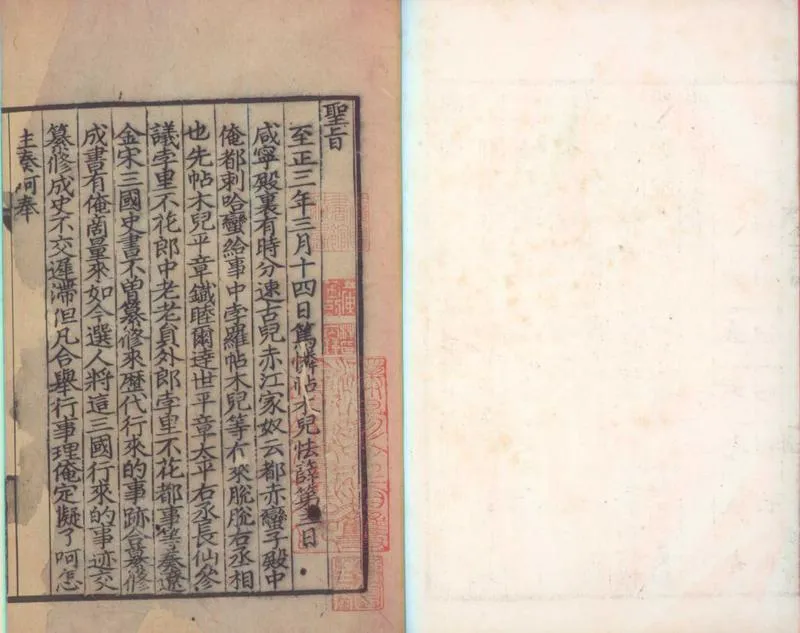 聖旨
至正三年三月十四日篤憐帖木兒怯薛第三日
咸寧殿裏有時分速古兒赤江家奴云都赤蠻子殿中
俺都剌哈蠻給事中孛羅帖木兒等有來脫脫右丞相
也先帖木兒平章鐵睦爾達世平章太平右丞長仙參
議孛里不花郎中老老員外郎孛里不花都事等奏遼
金宋三國史書不曾纂修來歷代行來的事跡合纂修
成書有俺商量來如今選人將這三國行來的事迹交
纂修成史不交遲滯但凡合舉行事理俺定擬了呵怎
生奏呵奉